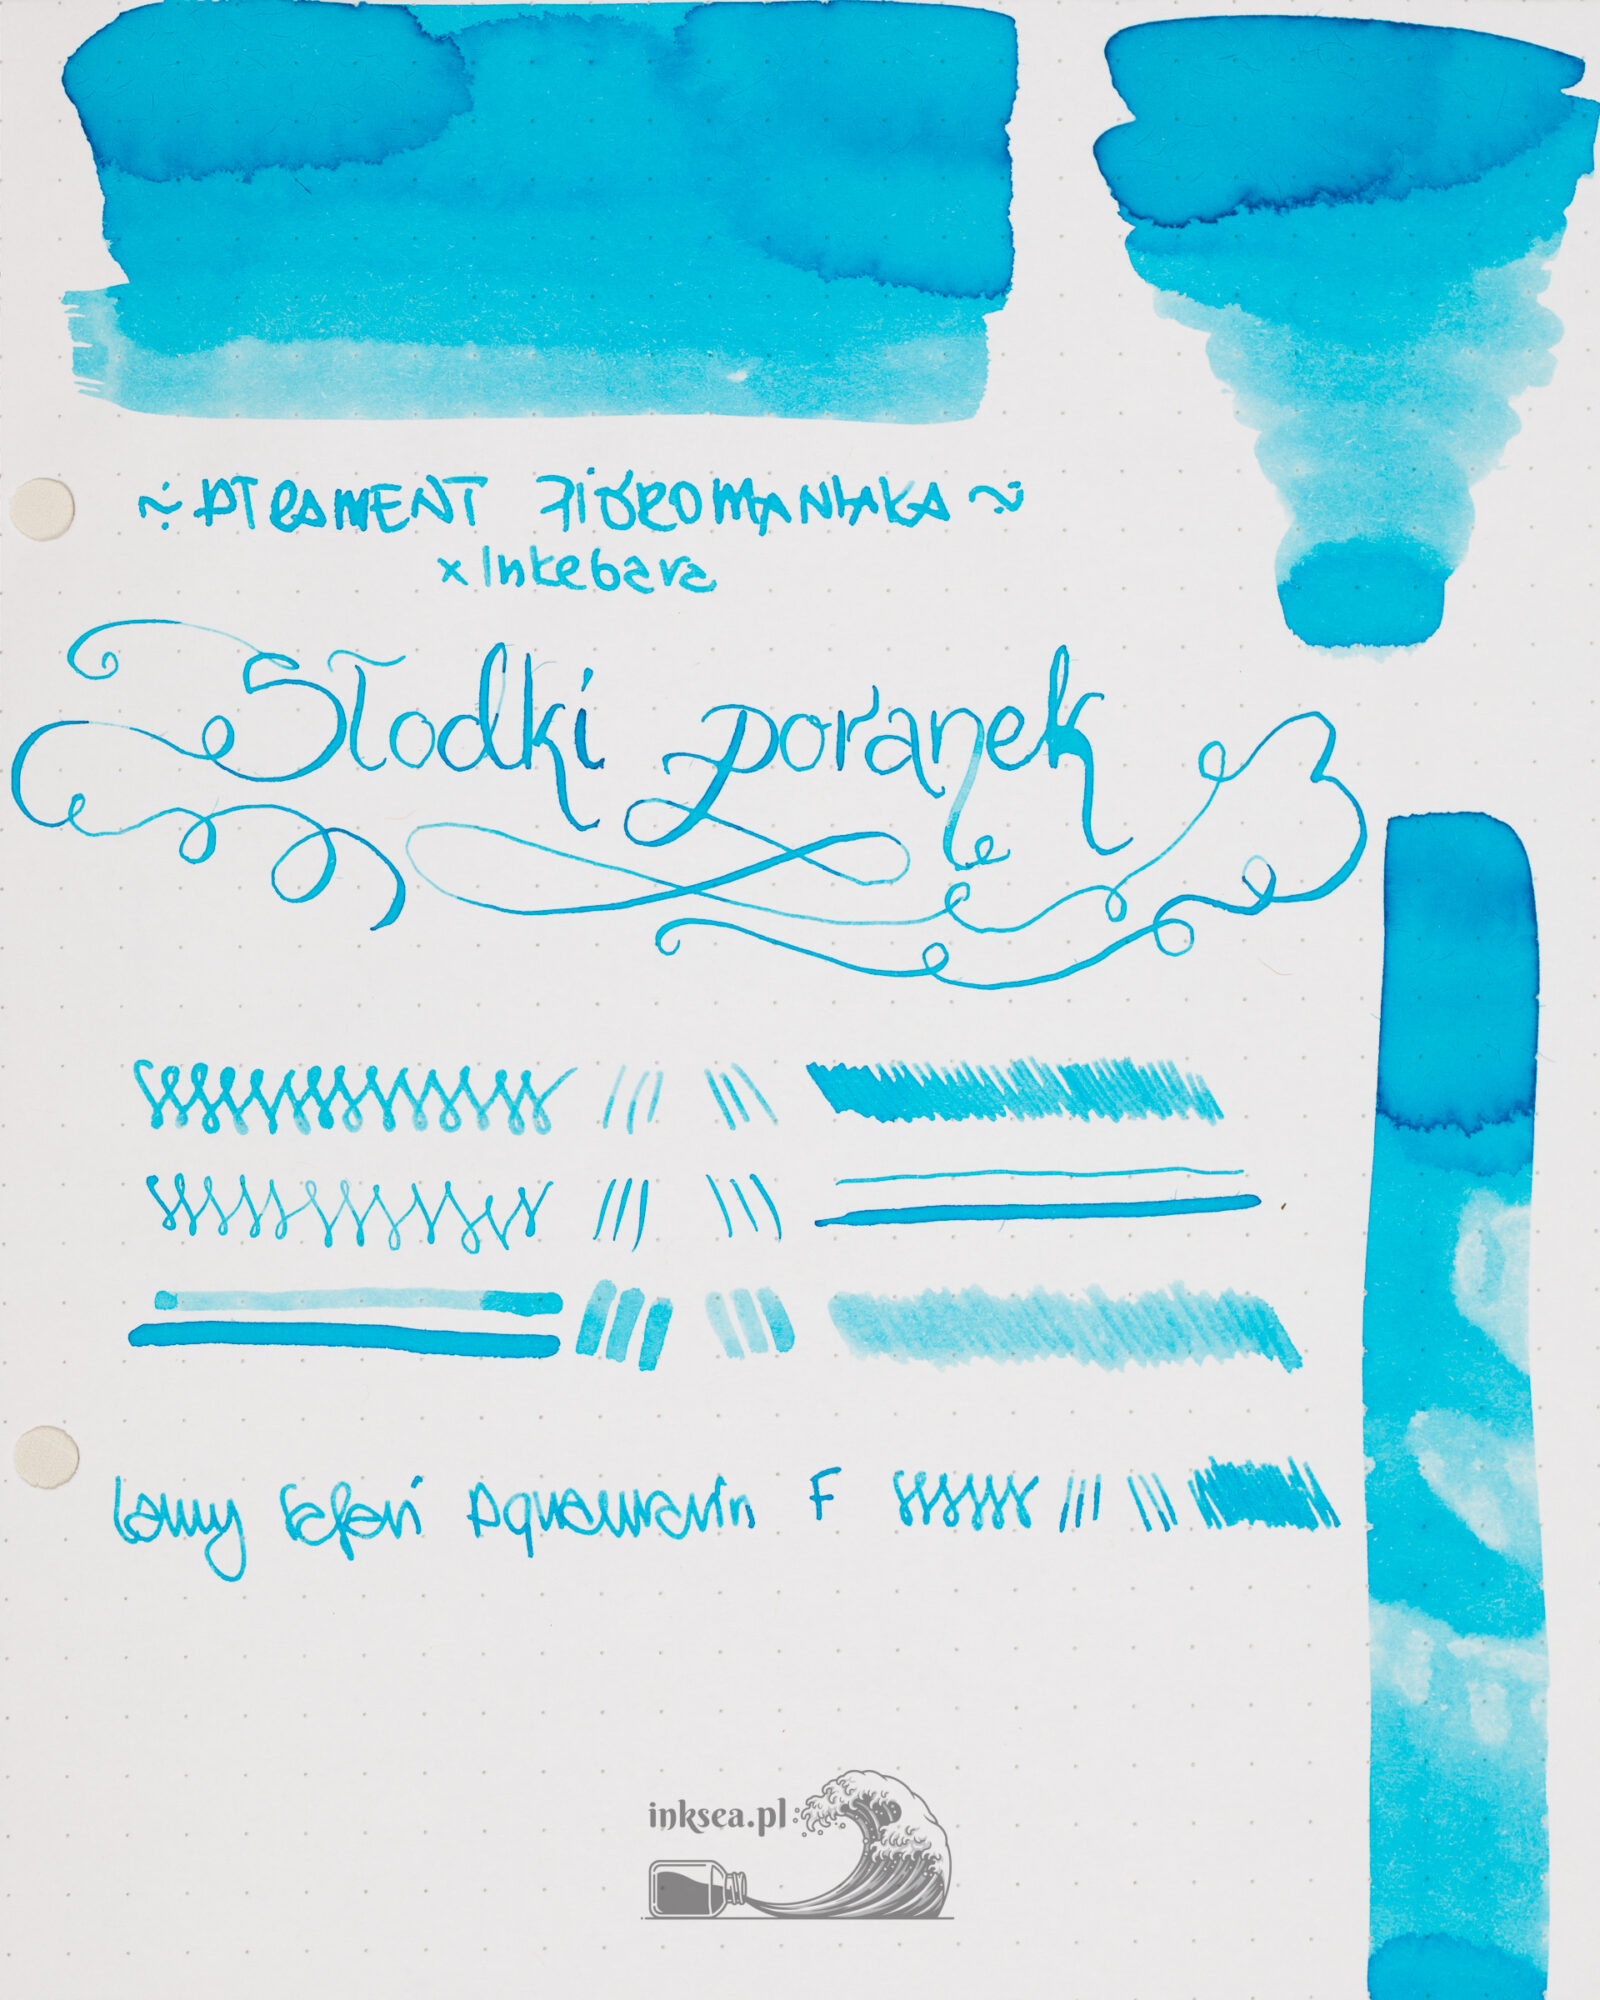 ~ ATRAMENT PIÓROMANIAKA ~
x Inkebara
Słodki poranek
Lamy Safari Aquamarin F
inksea.pl